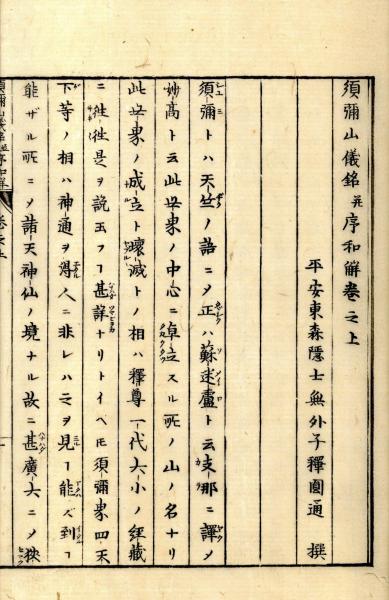 須彌山儀銘并序和解卷之上
平安東森隱士無外子釋圓通 撰
須彌トハ天竺ノ語ニメ正ハ蘇迷盧ト云支那ニ譯メ
妙高ト云此世界ノ中心ニ卓立スル所ノ山ノ名ナリ
此世界ノ成立ト壞滅トノ相ハ釋尊一代大小ノ經藏
ニ徃徃是ヲ説玉フヿ甚詳ナリトイヘ𪜈須彌界四天
下等ノ相ハ神通ヲ得人ニ非レハ之ヲ見ヿ能ズ到ヿ
能ザル所ニメ諸天神仙ノ境ナル故ニ甚廣大ニメ狹